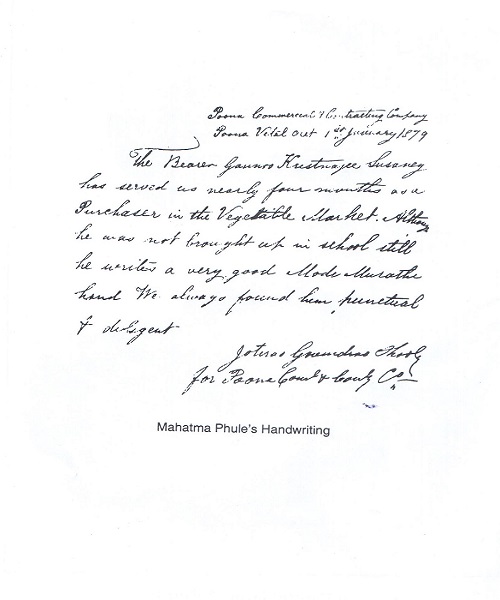 Poona Commercial & Contracting Company
Poona Vital 1st January 1879
The Bearer Gunnoo Kristnajee Susaney
has served us nearly four months as a
Purchaser in the Vegetable Market. Althoug
he was not brought up in school still
he writes a very good Mode Murathe
hand We always found him punctual
& diligent
Joterao Govindrao
for Poona Coml & Co
Mahatma Phule's Handwriting